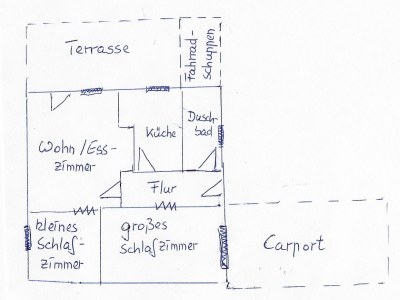 Terrasse
Fahrrad-
schuppen
Wohn/Ess-
zimmer
Küche
Dusch
bad
Flur
kleines
Schlaf-
zimmer
großes
Schlafzimmer
Carport